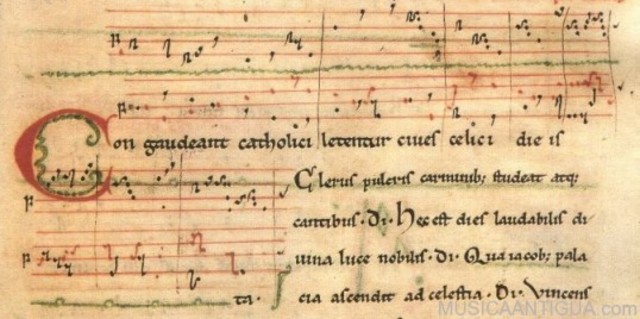 Con gaudeant catholici letentur ciues celici die is
Clerus pulcris carminib; studeat atq;
cantibus · di · Hec est dies laudabilis di
uina luce nobilis · di · Qua iacob; pala
ta · cia ascendit ad celestia · Di · Vincens
MUSICAANTIGUA.com